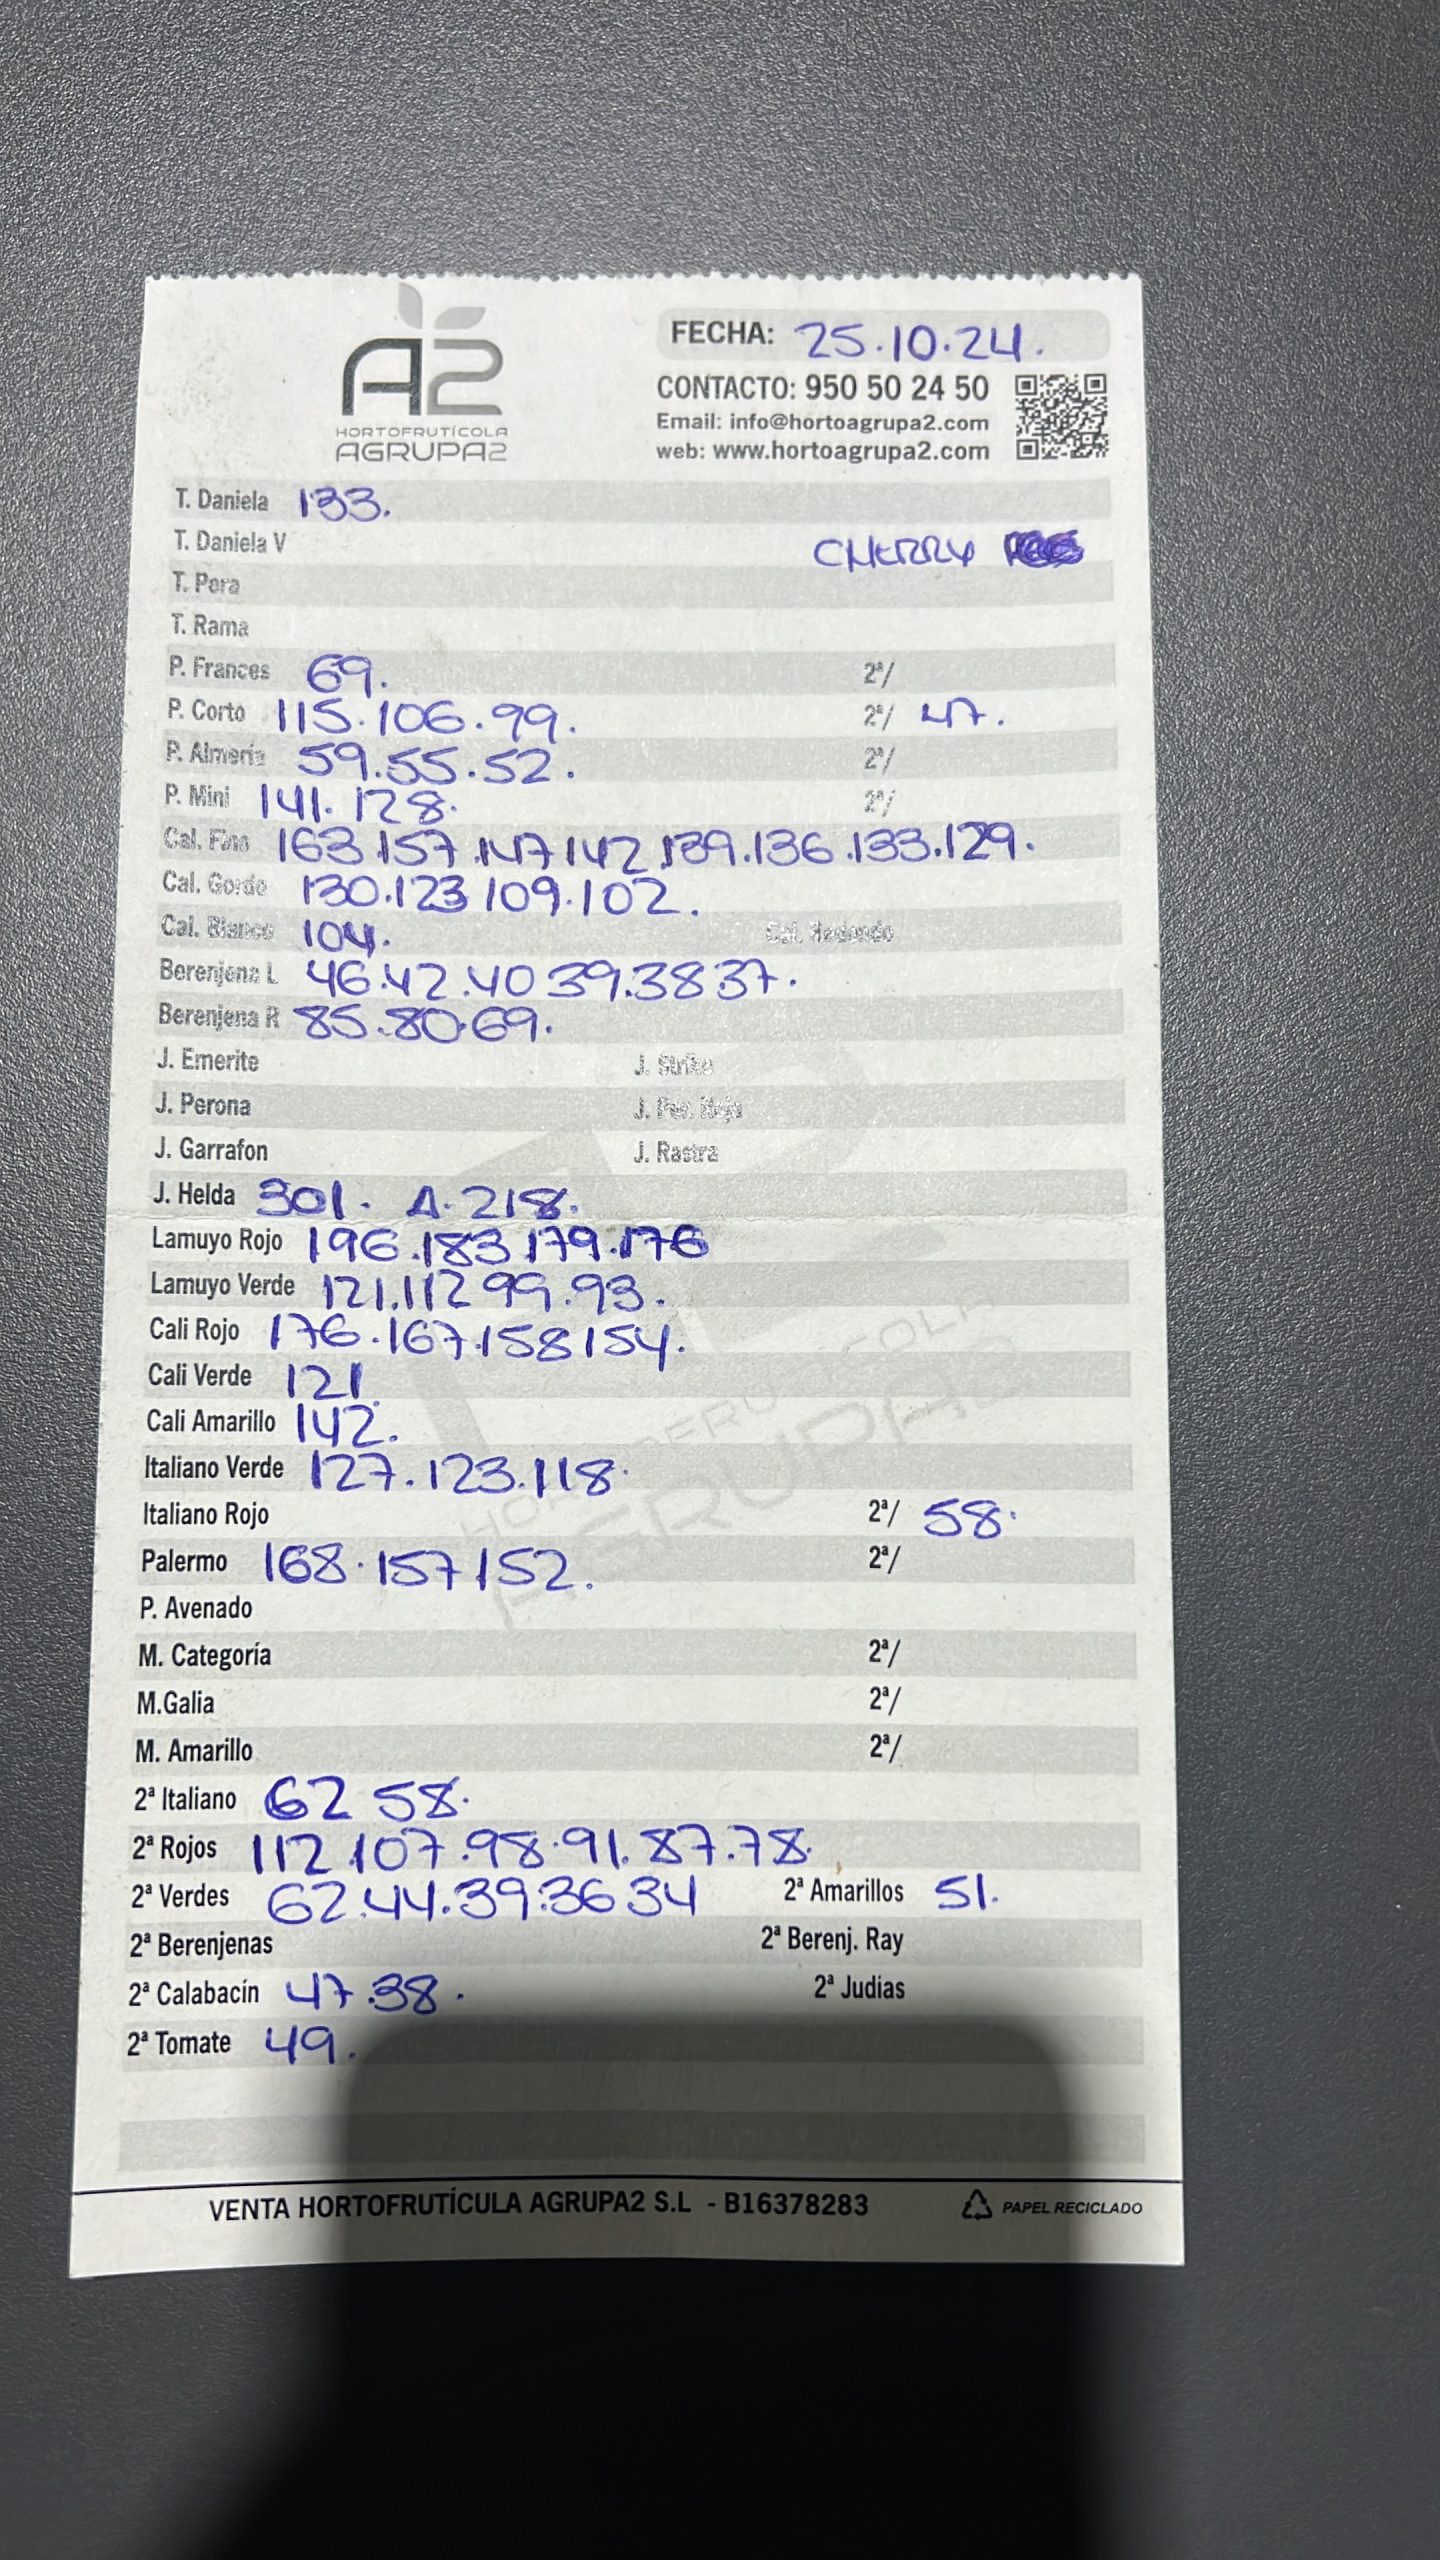 A2
HORTOFRUTÍCOLA
AGRUPA2
FECHA: 25.10.24.
CONTACTO: 950 50 24 50
Email: info@hortoagrupa2.com
web: www.hortoagrupa2.com
T. Daniela 133.
T. Daniela V CHERRY
T. Pera
T. Rama
P. Frances 69. 2ª/
P. Corto 115.106.99. 2ª/ 47.
P. Almeria 59.55.52. 2ª/
P. Mini 141.128. 2ª/
Cal. Fino 163.157.147 142.139.136.133.129.
Cal. Gordo 130.123 109.102.
Cal. Blanco 104. Cal. Redondo
Berenjena L 46.42.40 39.38 37.
Berenjena R 85.80.69.
J. Emerite J. Strike
J. Perona J. Per. Roja
J. Garrafon J. Rastra
J. Helda 301. A.218.
Lamuyo Rojo 196.183 179.176
Lamuyo Verde 121.112 99.93.
Cali Rojo 176.167.158 154.
Cali Verde 121.
Cali Amarillo 142.
Italiano Verde 127.123.118.
Italiano Rojo 2ª/ 58.
Palermo 168.157 152. 2ª/
P. Avenado
M. Categoría 2ª/
M.Galia 2ª/
M. Amarillo 2ª/
2ª Italiano 62 58.
2ª Rojos 112.107.98.91.87.78.
2ª Verdes 62.44.39.36 34 2ª Amarillos 51.
2ª Berenjenas 2ª Berenj. Ray
2ª Calabacín 47.38. 2ª Judias
2ª Tomate 49.
HORTOFRUTÍCOLA
AGRUPA2
VENTA HORTOFRUTÍCULA AGRUPA2 S.L - B16378283 PAPEL RECICLADO